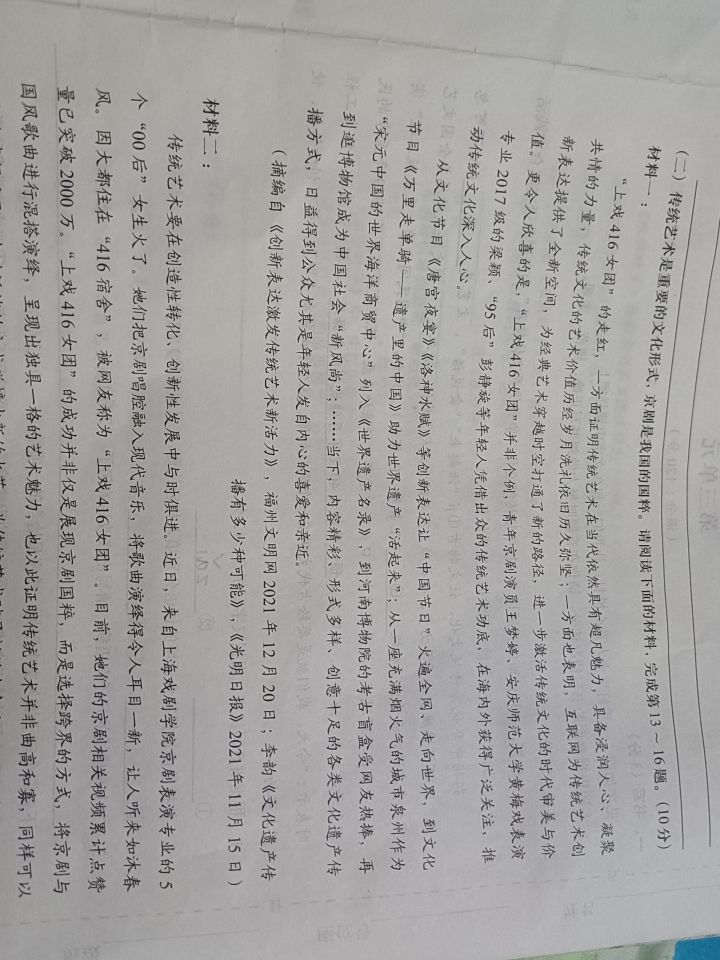 (二) 传统艺术是重要的文化形式,京剧是我国的国粹。请阅读下面的材料,完成第13~16题。(10分)
材料一:
“上戏416女团”的走红,一方面证明传统艺术在当代依然具有超凡魅力,具备浸润人心、凝聚
共情的力量,传统文化的艺术价值历经岁月洗礼依旧历久弥坚;一方面也表明,互联网为传统艺术创
新表达提供了全新空间,为经典艺术穿越时空打通了新的路径,进一步激活传统文化的时代审美与价
值。更令人欣喜的是,“上戏416女团”并非个例,青年京剧演员王梦婷、安庆师范大学黄梅戏表演
专业2017级的梁颖、“95后”彭静旋等年轻人凭借出众的传统艺术功底,在海内外获得广泛关注,推
动传统文化深入人心。
从文化节目《唐宫夜宴》《洛神水赋》等创新表达让“中国节日”火遍全网、走向世界,到文化
节目《万里走单骑——遗产里的中国》助力世界遗产“活起来”;从一座充满烟火气的城市泉州作为
“宋元中国的世界海洋商贸中心”列入《世界遗产名录》,到河南博物院的考古盲盒受网友热捧,再
到逛博物馆成为中国社会“新风尚”;……当下,内容精彩、形式多样、创意十足的各类文化遗产传
播方式,日益得到公众尤其是年轻人发自内心的喜爱和亲近。
(摘编自《创新表达激发传统艺术新活力》,福州文明网2021年12月20日;李韵《文化遗产传
播有多少种可能》,《光明日报》2021年11月15日)
材料二:
传统艺术要在创造性转化、创新性发展中与时俱进。近日,来自上海戏剧学院京剧表演专业的5
个“00后”女生火了。她们把京剧唱腔融入现代音乐,将歌曲演绎得令人耳目一新,让人听来如沐春
风。因大都住在“416宿舍”,被网友称为“上戏416女团”。目前,她们的京剧相关视频累计点赞
量已突破2000万。“上戏416女团”的成功并非仅是展现京剧国粹,而是选择跨界的方式,将京剧与
国风歌曲进行混搭演绎,呈现出独具一格的艺术魅力,也以此证明传统艺术并非曲高和寡,同样可以